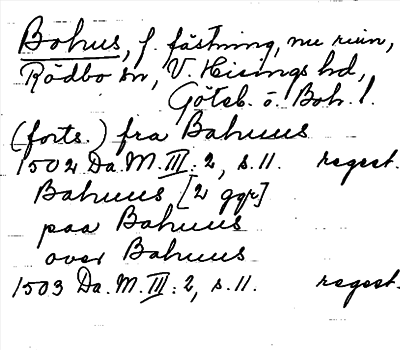 Bohus, f. fästning, nu ruin,
Rödbo sn, V. Hisings hd,
Göteb. o. Boh. l.
(forts.) fra Bahuus
1502 Da. M. III: 2, s. 11. regest.
Bahuus [2 ggr]
paa Bahuus
over Bahuus
1503 Da. M. III: 2, s. 11. regest.